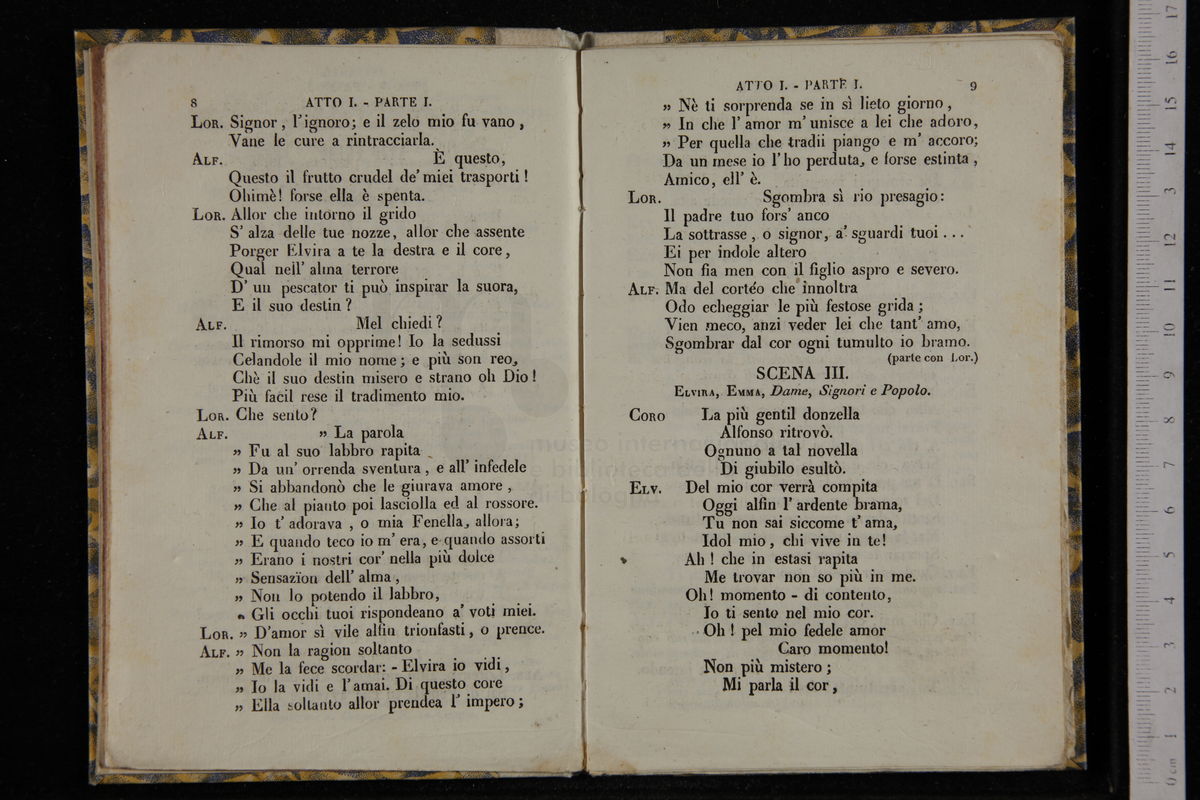 8 ATTO I. - PARTE I.
LOR. Signor, l'ignoro; e il zelo mio fu vano,
Vane le cure a rintracciarla.
ALF. È questo,
Questo il frutto crudel de' miei trasporti!
Ohimè! forse ella è spenta.
LOR. Allor che intorno il grido
S' alza delle tue nozze, allor che assente
Porger Elvira a te la destra e il core,
Qual nell' alma terrore
D' un pescator ti può inspirar la suora,
E il suo destin?
ALF. Mel chiedi?
Il rimorso mi opprime! Io la sedussi
Celandole il mio nome; e più son reo,
Chè il suo destin misero e strano oh Dio!
Più facil rese il tradimento mio.
LOR. Che sento?
ALF. » La parola
» Fu al suo labbro rapita
» Da un' orrenda sventura, e all' infedele
» Si abbandonò che le giurava amore,
» Che al pianto poi lasciolla ed al rossore.
» Io t' adorava, o mia Fenella, allora;
» E quando teco io m' era, e quando assorti
» Erano i nostri cor' nella più dolce
» Sensazïon dell' alma,
» Non lo potendo il labbro,
» Gli occhi tuoi rispondeano a' voti miei.
LOR. » D'amor sì vile alfin trionfasti, o prence.
ALF. » Non la ragion soltanto
» Me la fece scordar: - Elvira io vidi,
» Io la vidi e l'amai. Di questo core
» Ella soltanto allor prendea l' impero;
ATTO I. - PARTE I. 9
» Nè ti sorprenda se in sì lieto giorno,
» In che l' amor m' unisce a lei che adoro,
» Per quella che tradii piango e m' accoro;
Da un mese io l' ho perduta, e forse estinta,
Amico, ell' è.
LOR. Sgombra sì rio presagio:
Il padre tuo fors' anco
La sottrasse, o signor, a' sguardi tuoi...
Ei per indole altero
Non fia men con il figlio aspro e severo.
ALF. Ma del cortéo che innoltra
Odo echeggiar le più festose grida;
Vien meco, anzi veder lei che tant' amo,
Sgombrar dal cor ogni tumulto io bramo.
(parte con Lor.)
SCENA III.
ELVIRA, EMMA, Dame, Signori e Popolo.
CORO La più gentil donzella
Alfonso ritrovò.
Ognuno a tal novella
Di giubilo esultò.
ELV. Del mio cor verrà compita
Oggi alfin l' ardente brama,
Tu non sai siccome t' ama,
Idol mio, chi vive in te!
Ah! che in estasi rapita
Me trovar non so più in me.
Oh! momento - di contento,
Io ti sento nel mio cor.
Oh! pel mio fedele amor
Caro momento!
Non più mistero;
Mi parla il cor,
museo internazionale
e biblioteca della
di bologna
0 cm 1 2 3 4 5 6 7 8 9 10 11 12 13 14 15 16 17